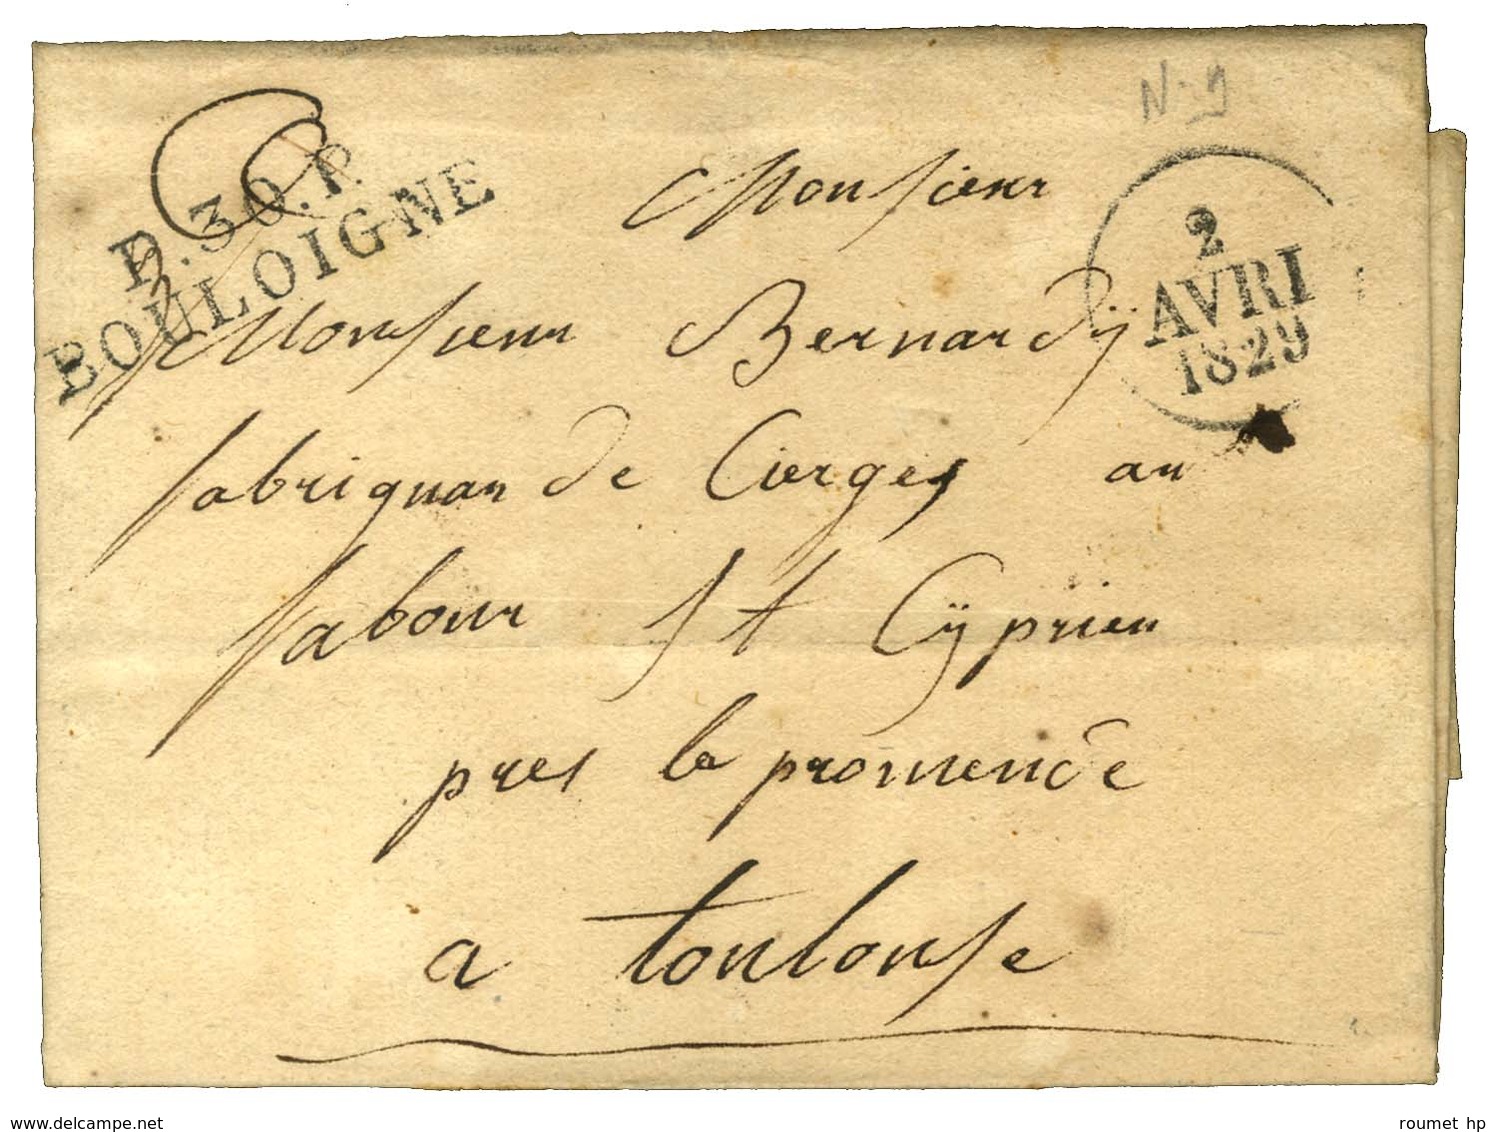 N-9
P.30.P.
BOULOIGNE
2
AVRI
1829
Monsieur
Monsieur Bernardÿ
fabriquan de Cierges au
fabour St Cÿprien
pres la promende
a toulouse
www.delcampe.net
roumet hp